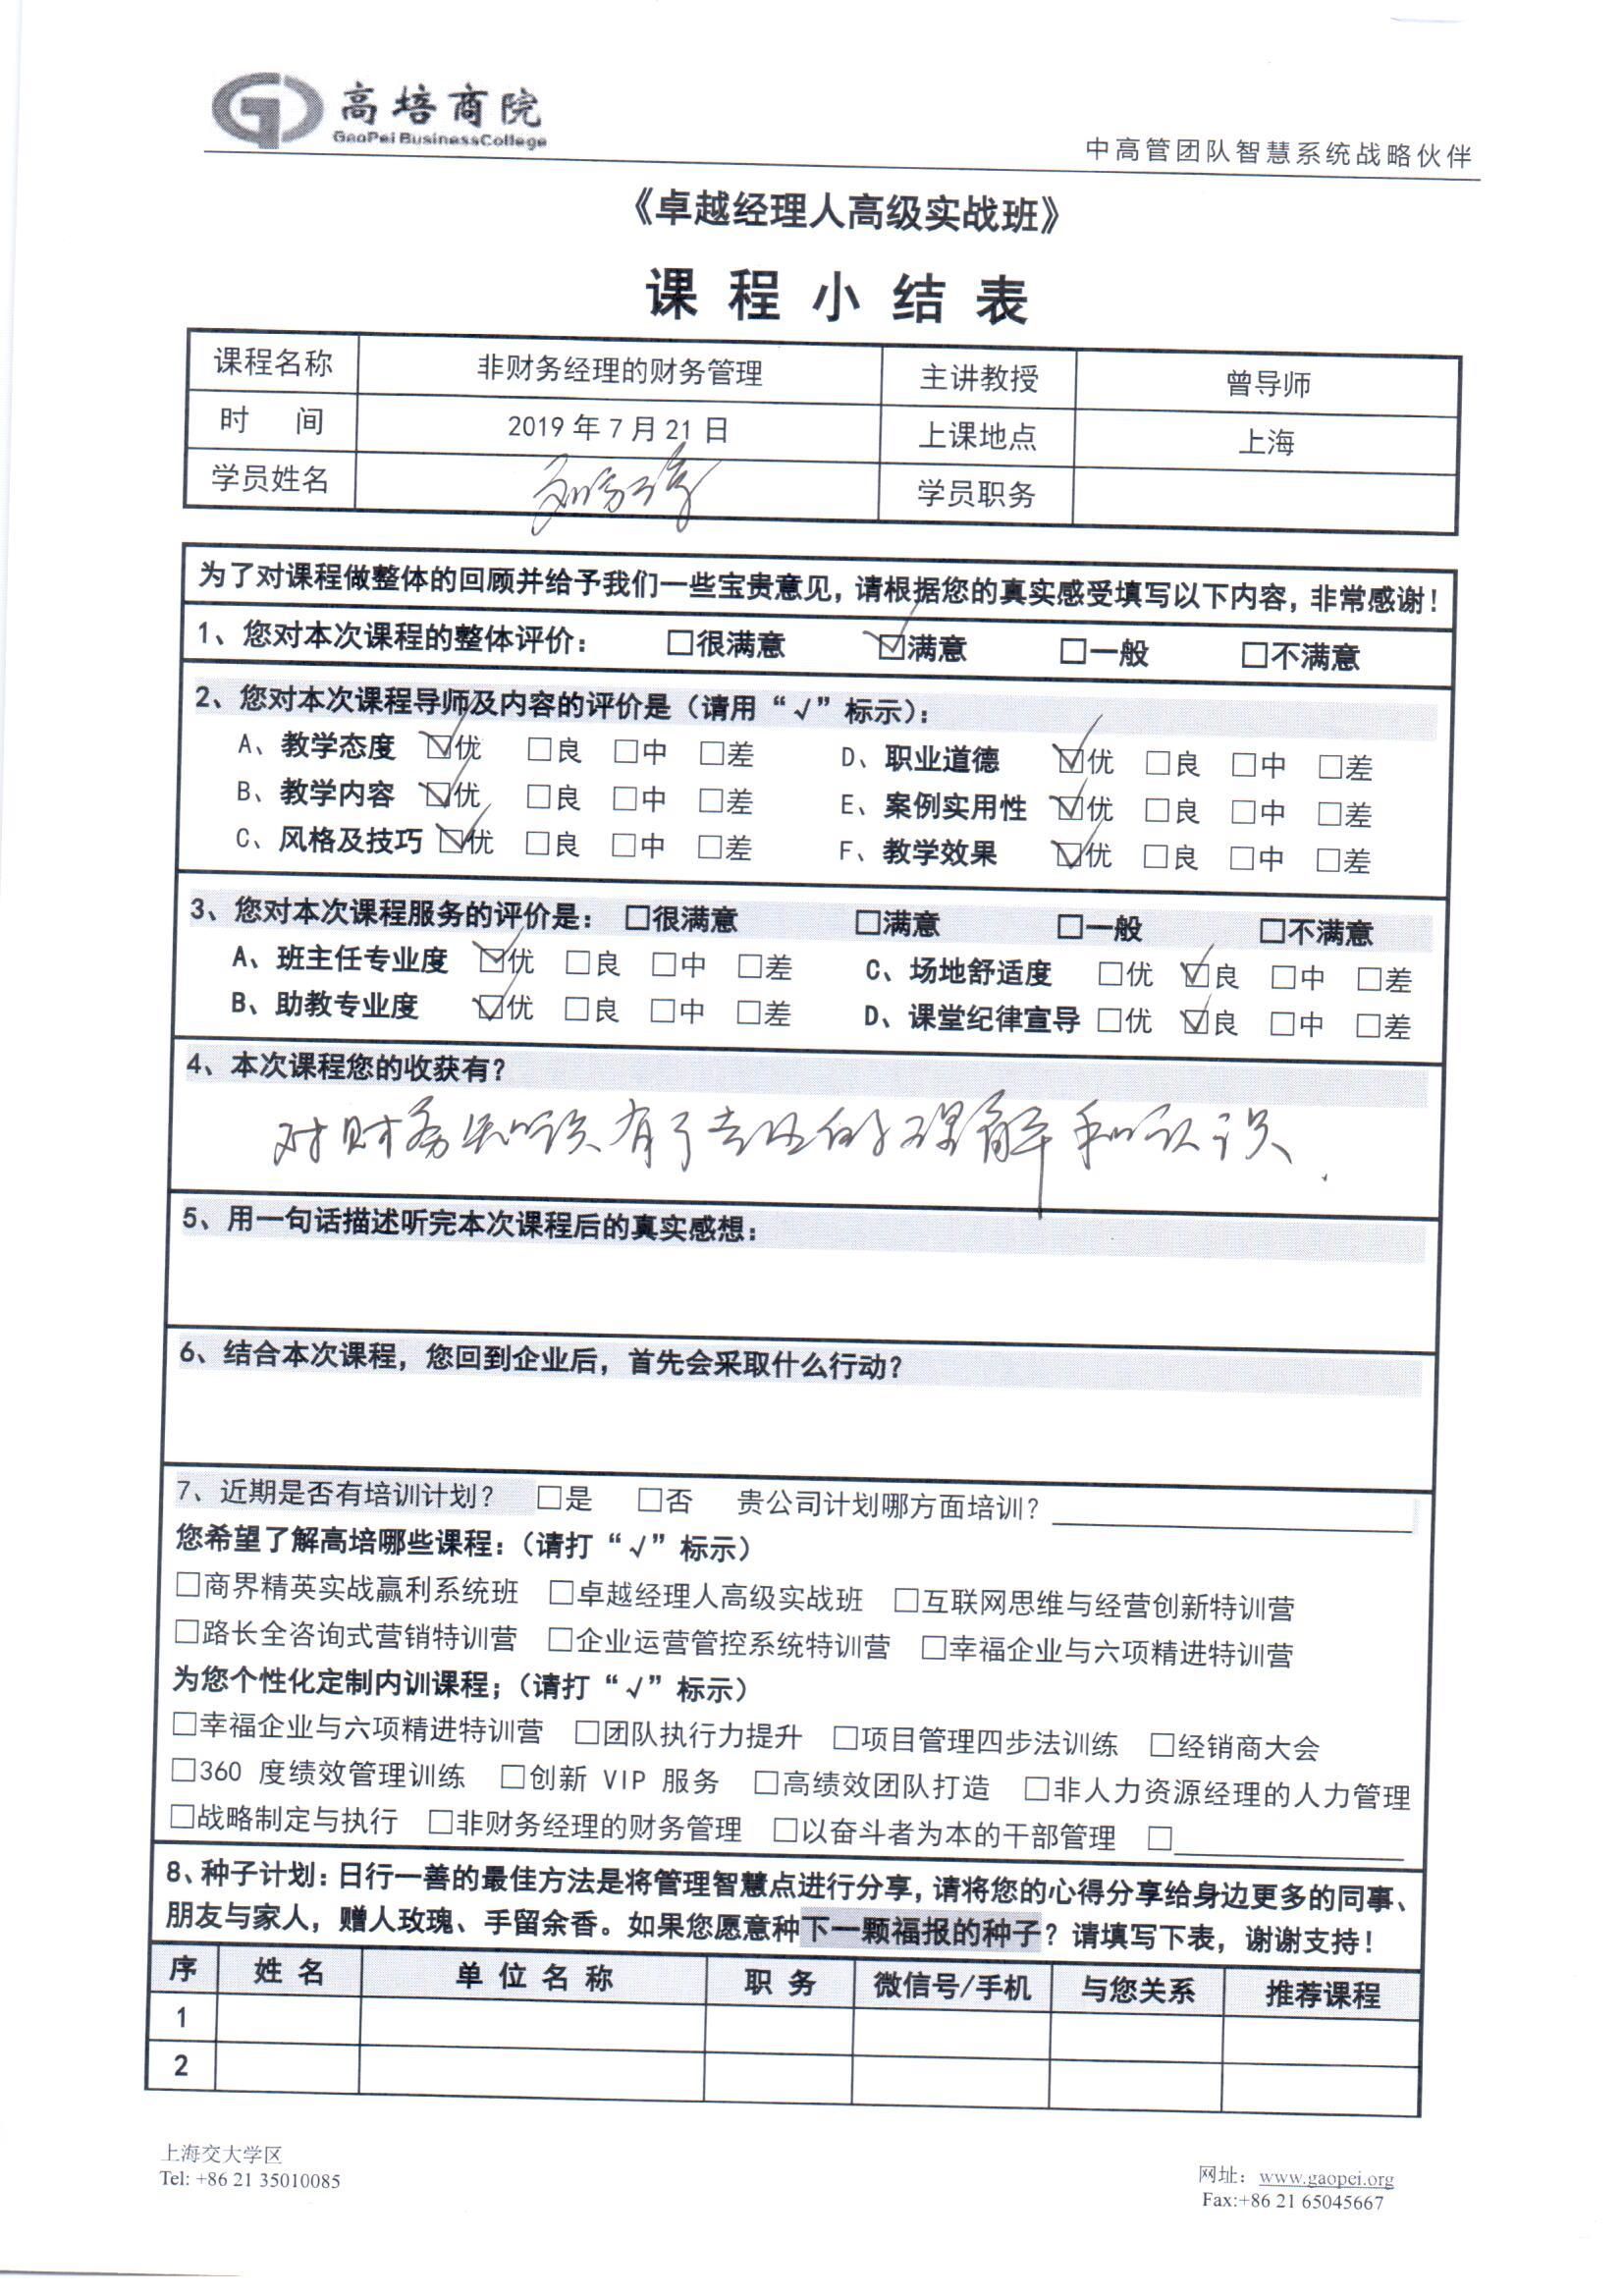 高培商院
GaoPei BusinessCollege
中高管团队智慧系统战略伙伴
《卓越经理人高级实战班》
课程小结表
课程名称 非财务经理的财务管理 主讲教授 曾导师
时 间 2019年7月21日 上课地点 上海
学员姓名 学员职务
为了对课程做整体的回顾并给予我们一些宝贵意见，请根据您的真实感受填写以下内容，非常感谢！
1、您对本次课程的整体评价： □很满意 ☑满意 □一般 □不满意
2、您对本次课程导师及内容的评价是（请用“√”标示）：
A、教学态度 ☑优 □良 □中 □差 D、职业道德 ☑优 □良 □中 □差
B、教学内容 ☑优 □良 □中 □差 E、案例实用性 ☑优 □良 □中 □差
C、风格及技巧 ☑优 □良 □中 □差 F、教学效果 ☑优 □良 □中 □差
3、您对本次课程服务的评价是： □很满意 □满意 □一般 □不满意
A、班主任专业度 ☑优 □良 □中 □差 C、场地舒适度 □优 ☑良 □中 □差
B、助教专业度 ☑优 □良 □中 □差 D、课堂纪律宣导 □优 ☑良 □中 □差
4、本次课程您的收获有？
对财务知识有了的理解和认识.
5、用一句话描述听完本次课程后的真实感想：
6、结合本次课程，您回到企业后，首先会采取什么行动？
7、近期是否有培训计划？ □是 □否 贵公司计划哪方面培训？
您希望了解高培哪些课程：（请打“√”标示）
□商界精英实战赢利系统班 □卓越经理人高级实战班 □互联网思维与经营创新特训营
□路长全咨询式营销特训营 □企业运营管控系统特训营 □幸福企业与六项精进特训营
为您个性化定制内训课程；（请打“√”标示）
□幸福企业与六项精进特训营 □团队执行力提升 □项目管理四步法训练 □经销商大会
□360 度绩效管理训练 □创新 VIP 服务 □高绩效团队打造 □非人力资源经理的人力管理
□战略制定与执行 □非财务经理的财务管理 □以奋斗者为本的干部管理 □
8、种子计划：日行一善的最佳方法是将管理智慧点进行分享，请将您的心得分享给身边更多的同事、
朋友与家人，赠人玫瑰、手留余香。如果您愿意种下一颗福报的种子？请填写下表，谢谢支持！
序 姓名 单位名称 职务 微信号/手机 与您关系 推荐课程
1
2
上海交大学区
Tel: +86 21 35010085
网址：www.gaopei.org
Fax:+86 21 65045667